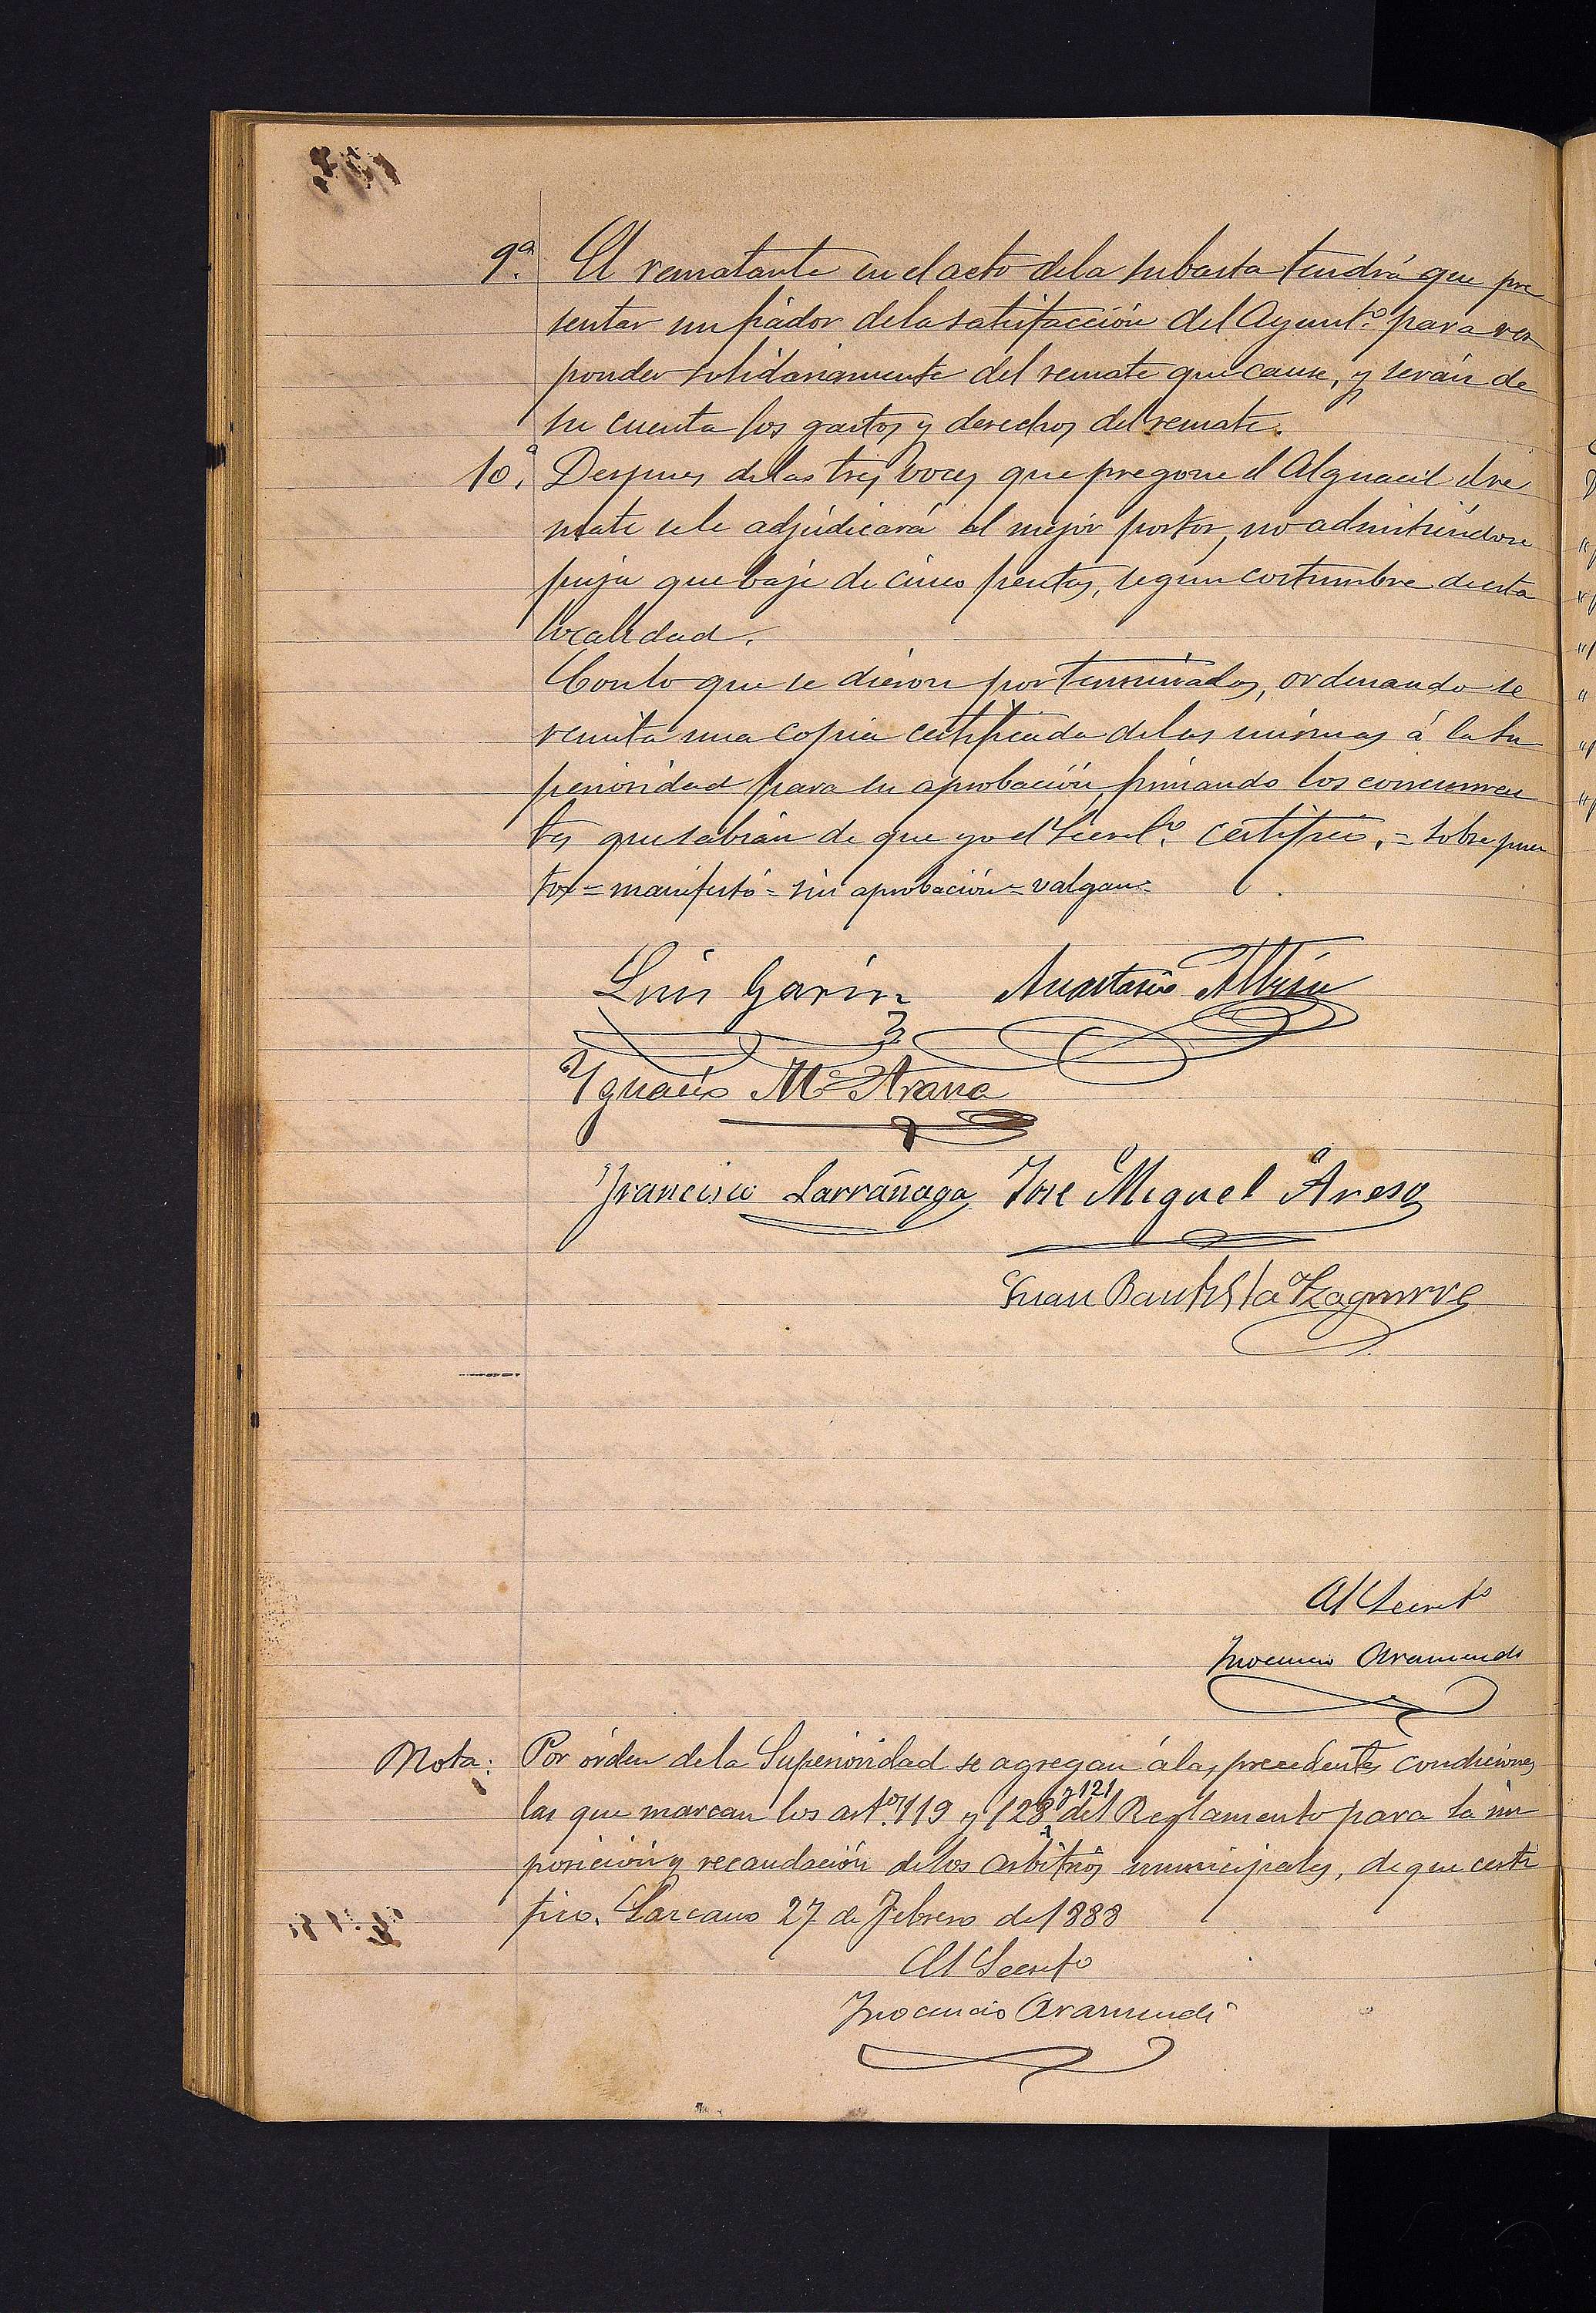 9ª. El rematante en el acto dela subasta tendrá que pre
sentar un fiador dela satisfacción del Ayuntº. para res
ponder solidariamente del remate que cause, y serán de
su cuenta los gastos y derechos del remate.
10ª. Despues delas tres voces que pregone el Alguacil el re
mate se le adjudicará al mejor postor, no admitiéndose
puja que baje de cinco pesetas, según costumbre de esta
localidad.
Con lo que se dieron por terminadas, ordenando se
remita una copia certificada delas mismas á la Su
perioridad para su aprobación, firmando los concurren
tes que sabían de que yo el Secretº. certifico. = Sobrepues
tos = manifestó = sin aprobación = valgan =
Luis Garin Anastasio Albisu
Ygnacio Mª Arana
Francisco Larrañaga Jose Miguel Areso
Juan Bautista Yzaguirre
El Secretº
Inocencio Aramendi
Nota: Por órden dela Superioridad se agregan á las precedentes condiciones
y 121
las que marcan los artos. 119 y 128 del Reglamento para la im
posición y recaudación delos arbitrios municipales, de que certi
fico. Lazcano 27 de Febrero de 1888
El Secretº
Inocencio Aramendi